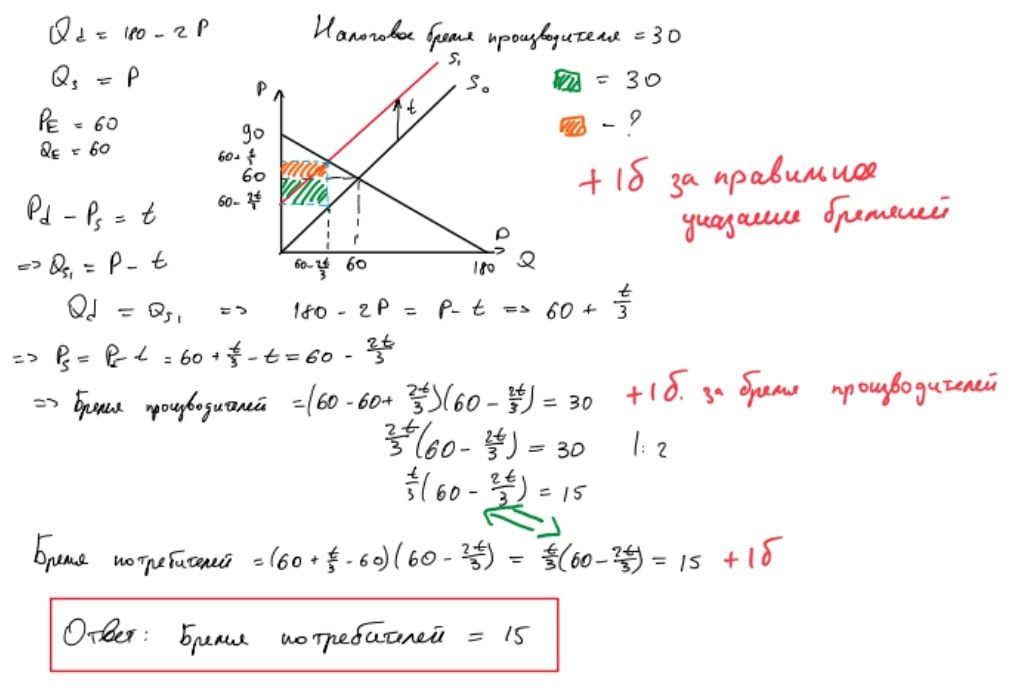 Qd = 180 - 2P
Налоговое бремя производителя = 30
Qs = P
S₁
S₀
= 30
P
t
PE = 60
QE = 60
90
- ?
60+t/3
60
60-2t/3
+1б за правильное
указание бременей
Pd - Ps = t
P
60-2t/3 60 180 Q
=> Qs₁ = P - t
Qd = Qs₁ => 180 - 2P = P - t => 60 + t/3
=> Ps = Pd - t = 60 + t/3 - t = 60 - 2t/3
=> Бремя производителей = (60 - 60 + 2t/3)(60 - 2t/3) = 30 +1б. за бремя производителей
2t/3(60 - 2t/3) = 30 |: 2
t/3(60 - 2t/3) = 15
Бремя потребителей = (60 + t/3 - 60)(60 - 2t/3) = t/3(60 - 2t/3) = 15 +1б
Ответ: Бремя потребителей = 15